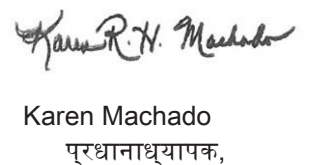 Karen R. H. Machado
Karen Machado
प्रधानाध्यापक,